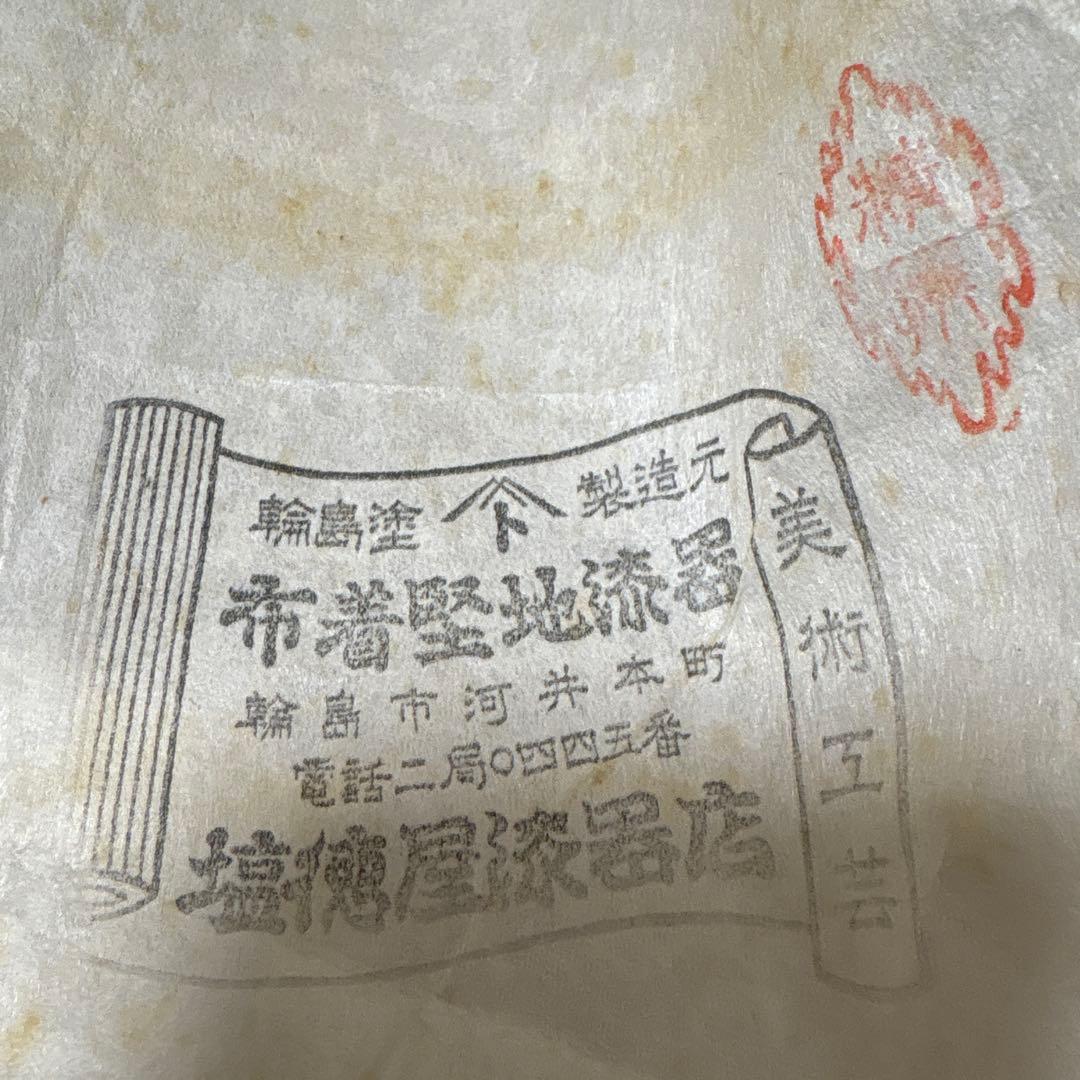 輪島塗 卜 製造元
布着堅地漆器
輪島市河井本町
電話二局〇四四五番
塩傳屋漆器店
美術工芸